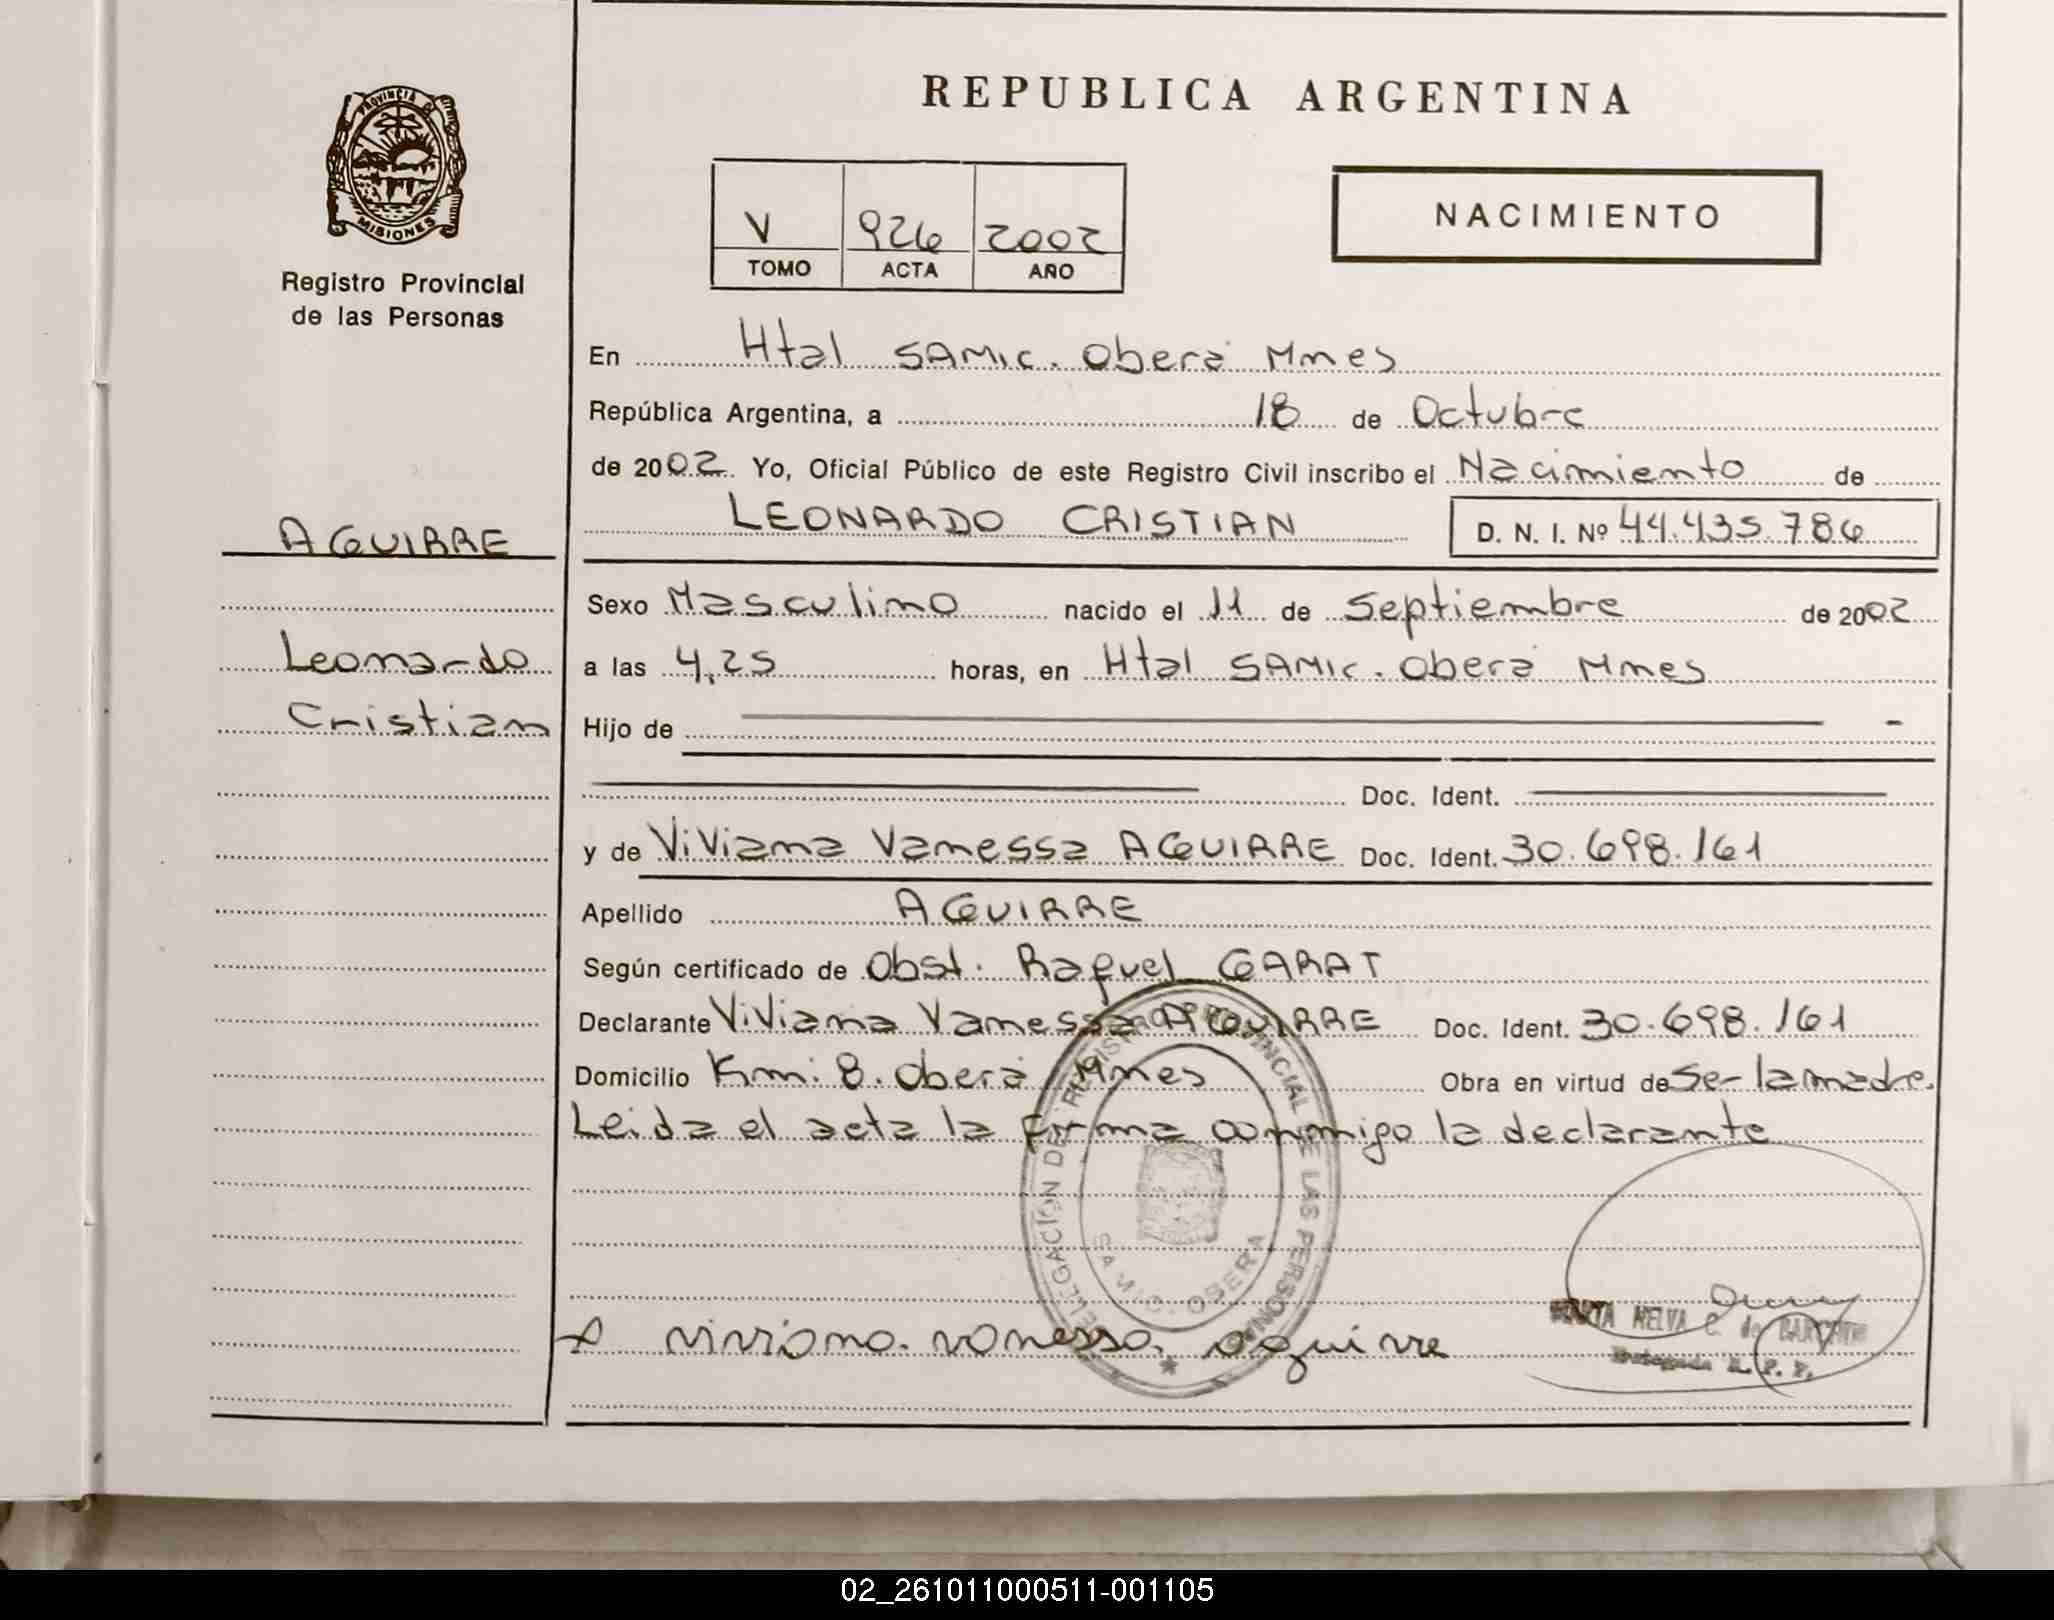 REPUBLICA ARGENTINA
PROVINCIA DE
MISIONES
Registro Provincial
de las Personas
V 926 2002
TOMO ACTA AÑO
NACIMIENTO
En Htal SAMIC. Oberá Mnes
República Argentina, a 18 de Octubre
de 2002. Yo, Oficial Público de este Registro Civil inscribo el Nacimiento de
AGUIRRE
LEONARDO CRISTIAN D. N. I. Nº 44.435.786
Sexo Masculino nacido el 11 de Septiembre de 2002
Leonardo
Cristian
a las 4,25 horas, en Htal SAMIC. Oberá Mnes
Hijo de
Doc. Ident.
y de Viviana Vanessa AGUIRRE Doc. Ident. 30.698.161
Apellido AGUIRRE
Según certificado de Obst. Raquel GARAT
Declarante Viviana Vanessa AGUIRRE Doc. Ident. 30.698.161
Domicilio Km: 8. Oberá Mnes Obra en virtud de Ser la madre.
Leida el acta la firma conmigo la declarante
DELEGACION DEL REGISTRO PROVINCIAL DE LAS PERSONAS
SAMIC. OBERA
viviana. vanessa. aguirre
MELVA C. de
Delegada R. P. P.
02_261011000511-001105